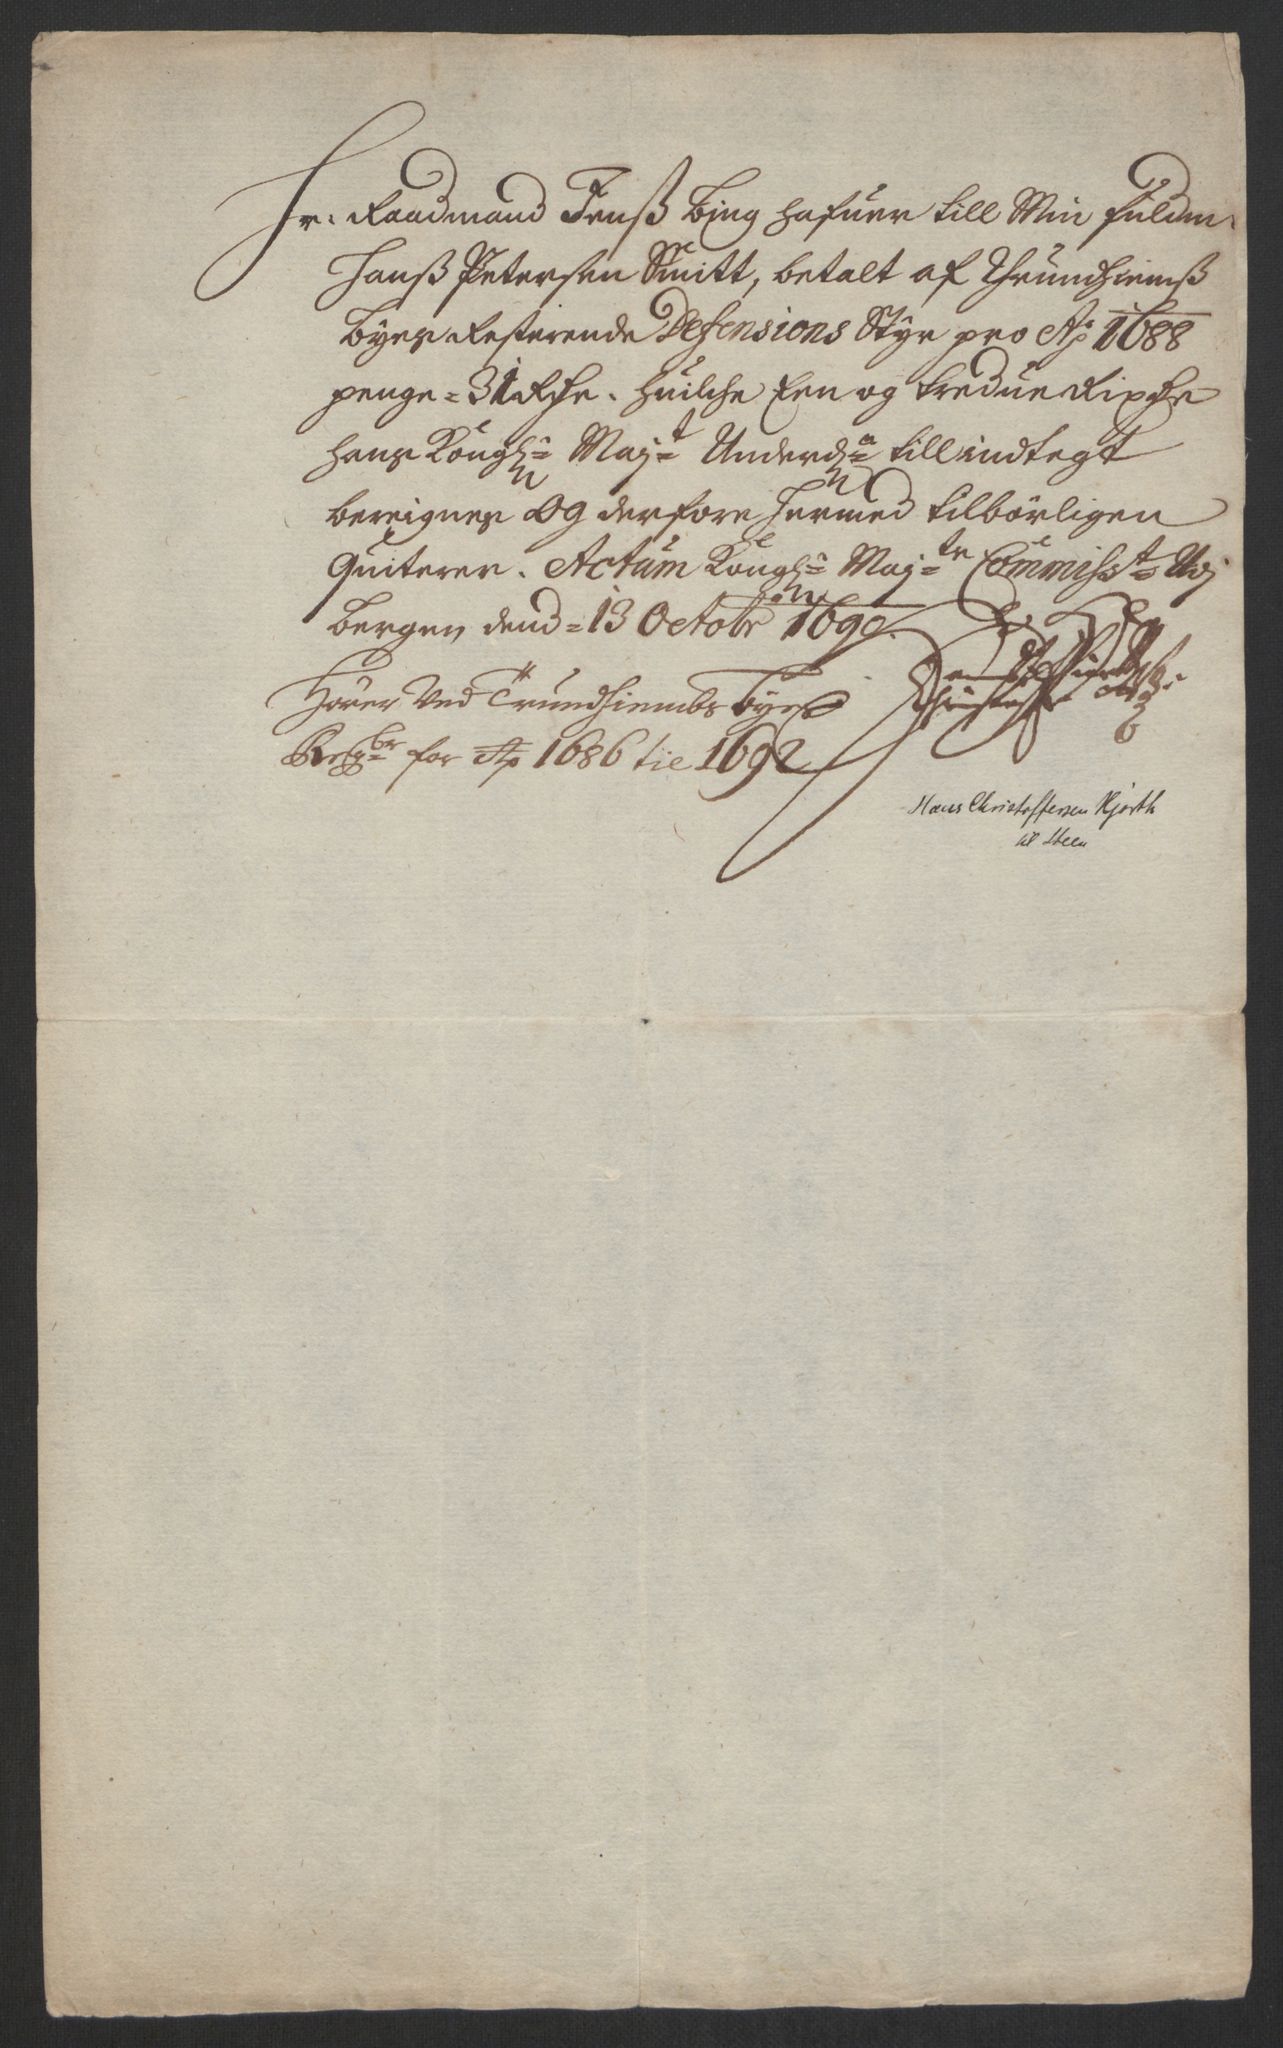 Hr. Raadmand Jenß Bing hafuer till Min fuldm:
Hanß Petersen Smitt, betalt af Thrundhiemß
Byes Resterende Defensions Skyr pro Ao 1688
penge = 31 Rdr. Huilche Een og tredue Rixdr
hans Kongl: Maj:t Underd: till indtegt
bereignes Og derfore Hermed tilbörligen
Quiterer. Actum Kongl: Maj:tz Commiss:t Udj
Bergen dend = 13 Octobr 1690.
Hörer Ved Trundhiembs Byes
Regn:br for Ao 1686 til 1692
Hans Christoffersen Hjorth
til Steen